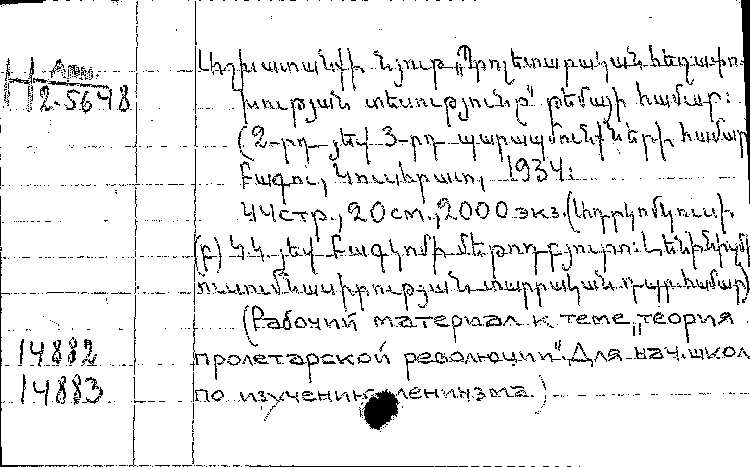 Арм.
2-5648
Աշխատանքի նյութ „Պրոլետարական հեղափո-
խության տեսությունը“ թեմայի համար:
(2-րդ յեվ 3-րդ պարապմունքների համար
Բագու, Կուսհրատ, 1934:
44 стр., 20 см., 2000 экз. (
(բ) Կ.Կ. յեվ Բագկոմի մեթոդ բյուրո: Լենինիզմի
ուսումնասիրության տարրական դպր. համար)
(Рабочий материал к теме „теория
14882 пролетарской революции“. Для нач. школ
14883 по изучению ленинизма.)